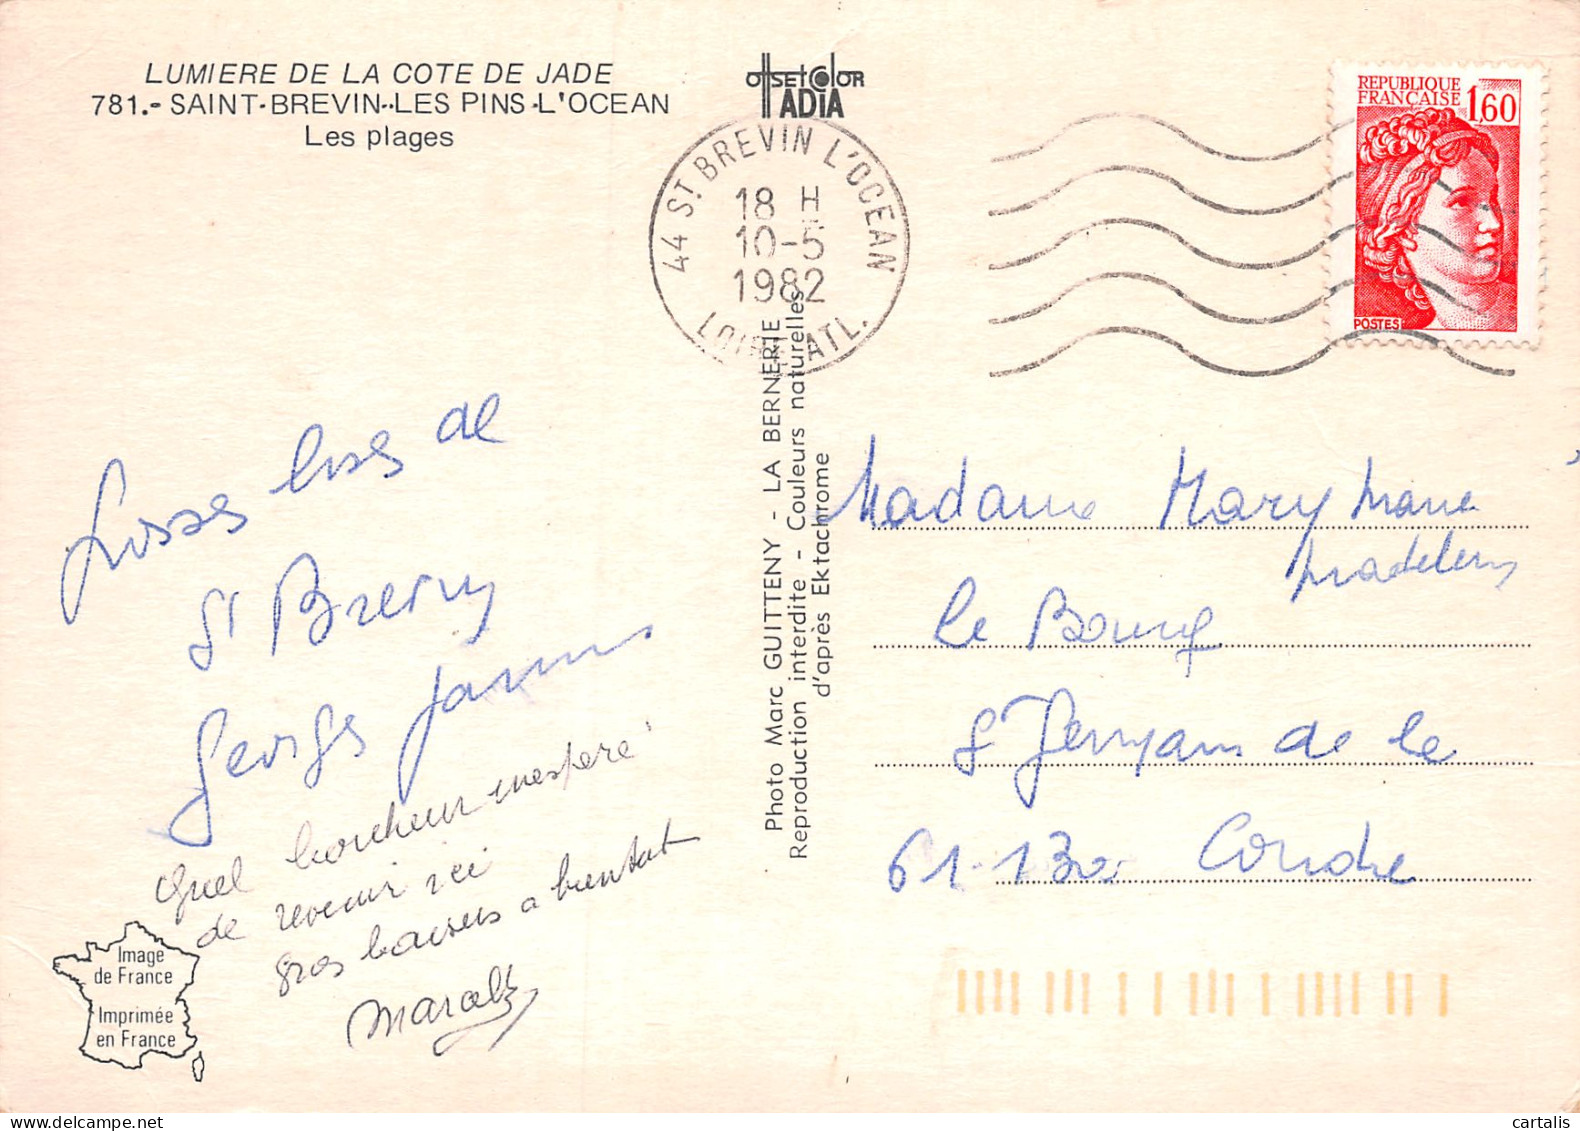 LUMIERE DE LA COTE DE JADE
781.- SAINT-BREVIN-LES PINS-L'OCEAN
Les plages
OffsetColor
ADIA
44 ST BREVIN L'OCEAN
18 H
10-5
1982
LOIRE ATL.
REPUBLIQUE
FRANCAISE 1,60
POSTES
Photo Marc GUITTENY - LA BERNERIE
Reproduction interdite - Couleurs naturelles
d'après Ektachrome
bises de
St Brevin
Georges
Quel bonheur inespéré
de revenir ici
gros baisers a bientot
Madame Mary
Madeleine
le Bourg
St Germain de la
61-130 Coudre
Image
de France
Imprimée
en France
cartalis